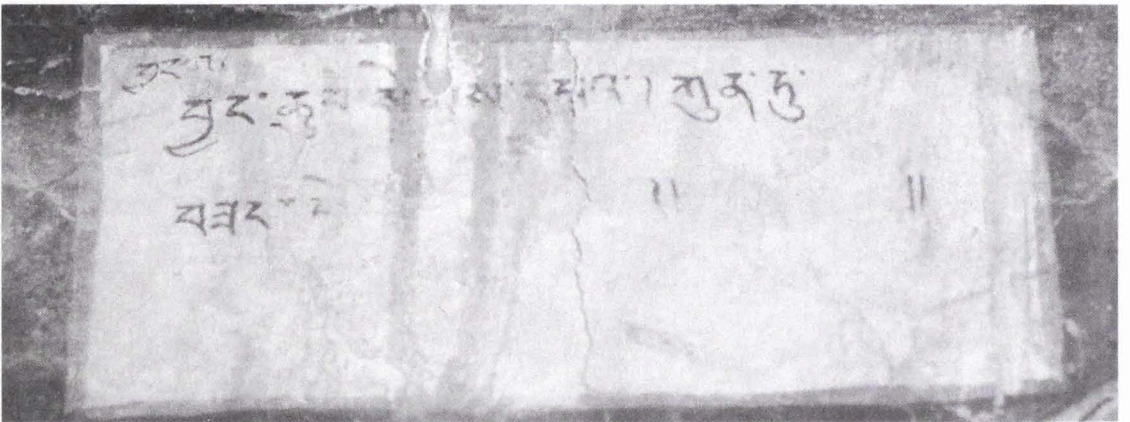 བྱང་ཆུབ་སེམས་དཔའ་། ཀུན་ཏུ་
བཟང་ །། །།